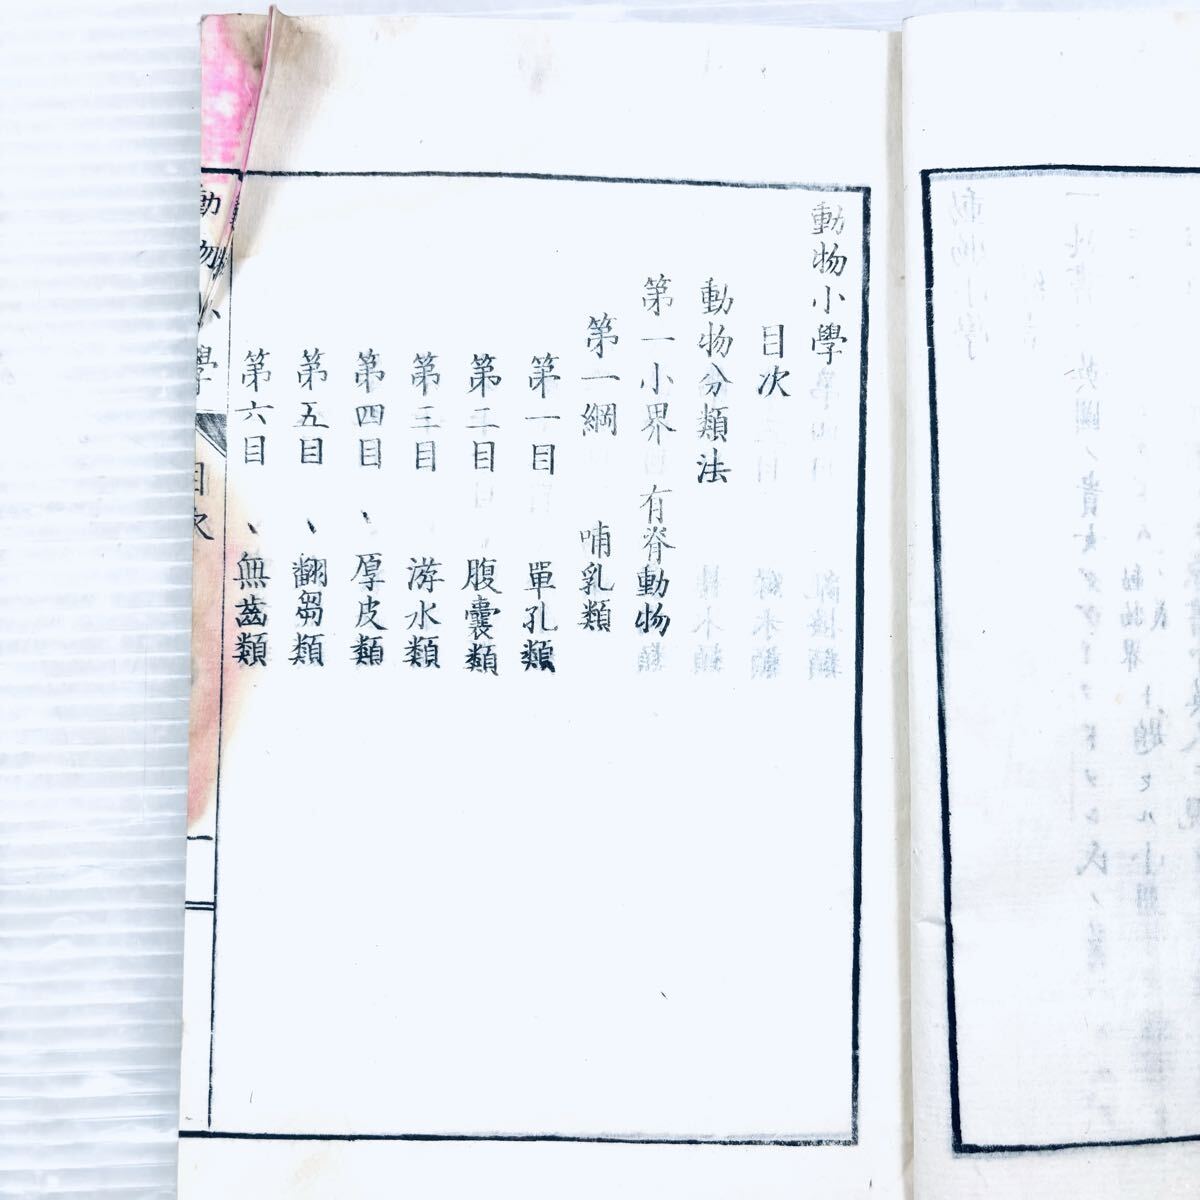 動物小學
目次
動物分類法
第一小界 有脊動物
第一綱 哺乳類
第一目 單孔類
第二目 腹囊類
第三目 游水類
第四目、厚皮類
第五目、翻芻類
第六目、無齒類
動物小學 目次